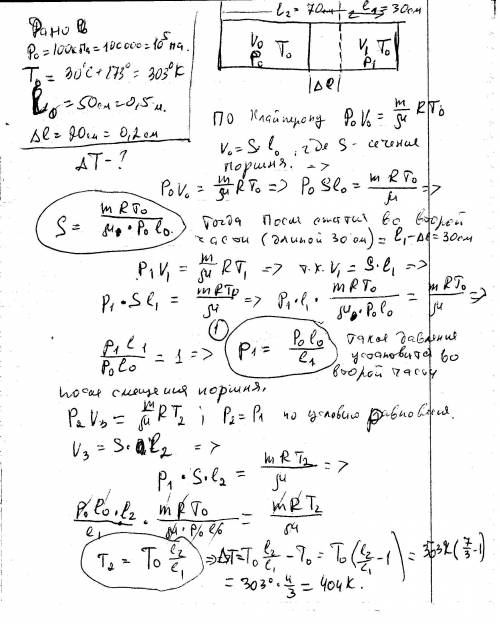 l₂ = 70см l₁ = 30см
Дано
P₀ = 100кПа = 100000 = 10⁵ па.
T₀ = 30°C + 273° = 303°K
L₀ = 50см = 0,5 м.
Δl = 20см = 0,2 см
ΔT - ?
V₀ T₀ V₁ T₀
P₀ P₁
|Δl|
По Клайперону P₀V₀ = m/μ RT₀
V₀ = S·l₀, где S - сечение
поршня. =>
P₀V₀ = m/μ RT₀ => P₀Sl₀ = mRT₀/μ =>
S = mRT₀/(μ·P₀l₀) Тогда после сжатия во второй
части (длиной 30см) = l₁-Δl = 30см
P₁V₁ = m/μ RT₁ => т.к. V₁ = S·l₁ =>
P₁·Sl₁ = mRT₀/μ => P₁·l₁·mRT₀/(μ·P₀l₀) = mRT₀/μ =>
P₁l₁/P₀l₀ = 1 => ① P₁ = P₀l₀/l₁ такое давление
установится во
второй части
после смещения поршня.
P₂V₃ = m/μ RT₂ ; P₂ = P₁ по условию равновесия.
V₃ = S·l₂ =>
P₁·S·l₂ = mRT₂/μ =>
P₀l₀·l₂/l₁ · mRT₀/(μ·P₀l₀) = mRT₂/μ
T₂ = T₀ l₂/l₁ => ΔT = T₀ l₂/l₁ - T₀ = T₀(l₂/l₁ - 1) = 303°(7/3 - 1)
= 303°·4/3 = 404K.